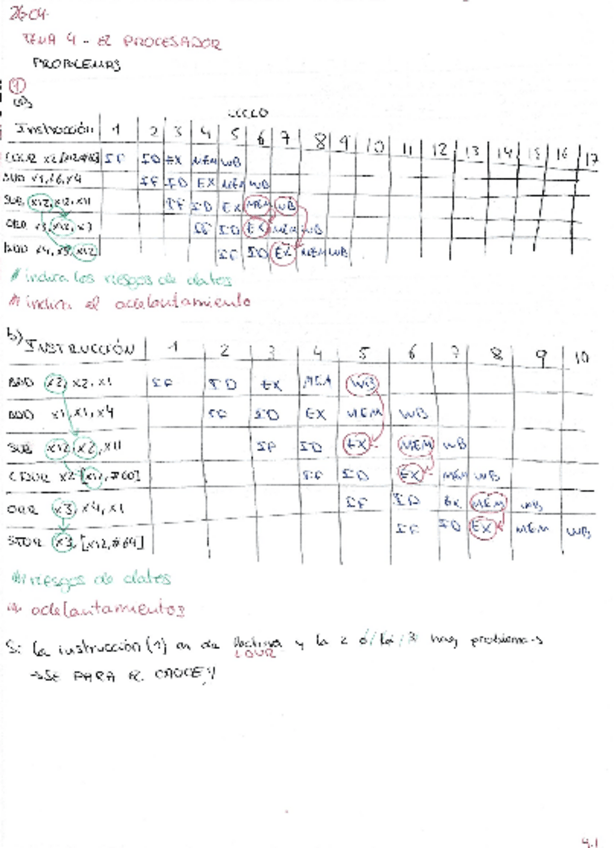 26-04
TEMA 4 - EL PROCESADOR
PROBLEMAS
1
a)
CICLO
Instrucción 1 2 3 4 5 6 7 8 9 10 11 12 13 14 15 16 17
LDUR x2 IF ID EX MEM WB
x4 IF ID EX MEM WB
SUB x12, x12, x11 IF ID EX MEM WB
IF ID EX MEM WB
ADD x4, x12 IF ID EX MEM WB
# indica los riesgos de datos
# indica el adelantamiento
b) INSTRUCCIÓN 1 2 3 4 5 6 7 8 9 10
ADD x2, x2, x1 IF ID EX MEM WB
ADD x1, x1, x4 IF ID EX MEM WB
SUB x12, x2, x11 IF ID EX MEM WB
LDUR x2 [x12, #60] IF ID EX MEM WB
ORR x3, x4, x1 IF ID EX MEM WB
STUR x3, [x12, #64] IF ID EX MEM WB
# riesgos de datos
adelantamientos
Si la instrucción (1) es de LDUR y la 2 hay problemas
→ SE PARA EL CAUCE
4.1